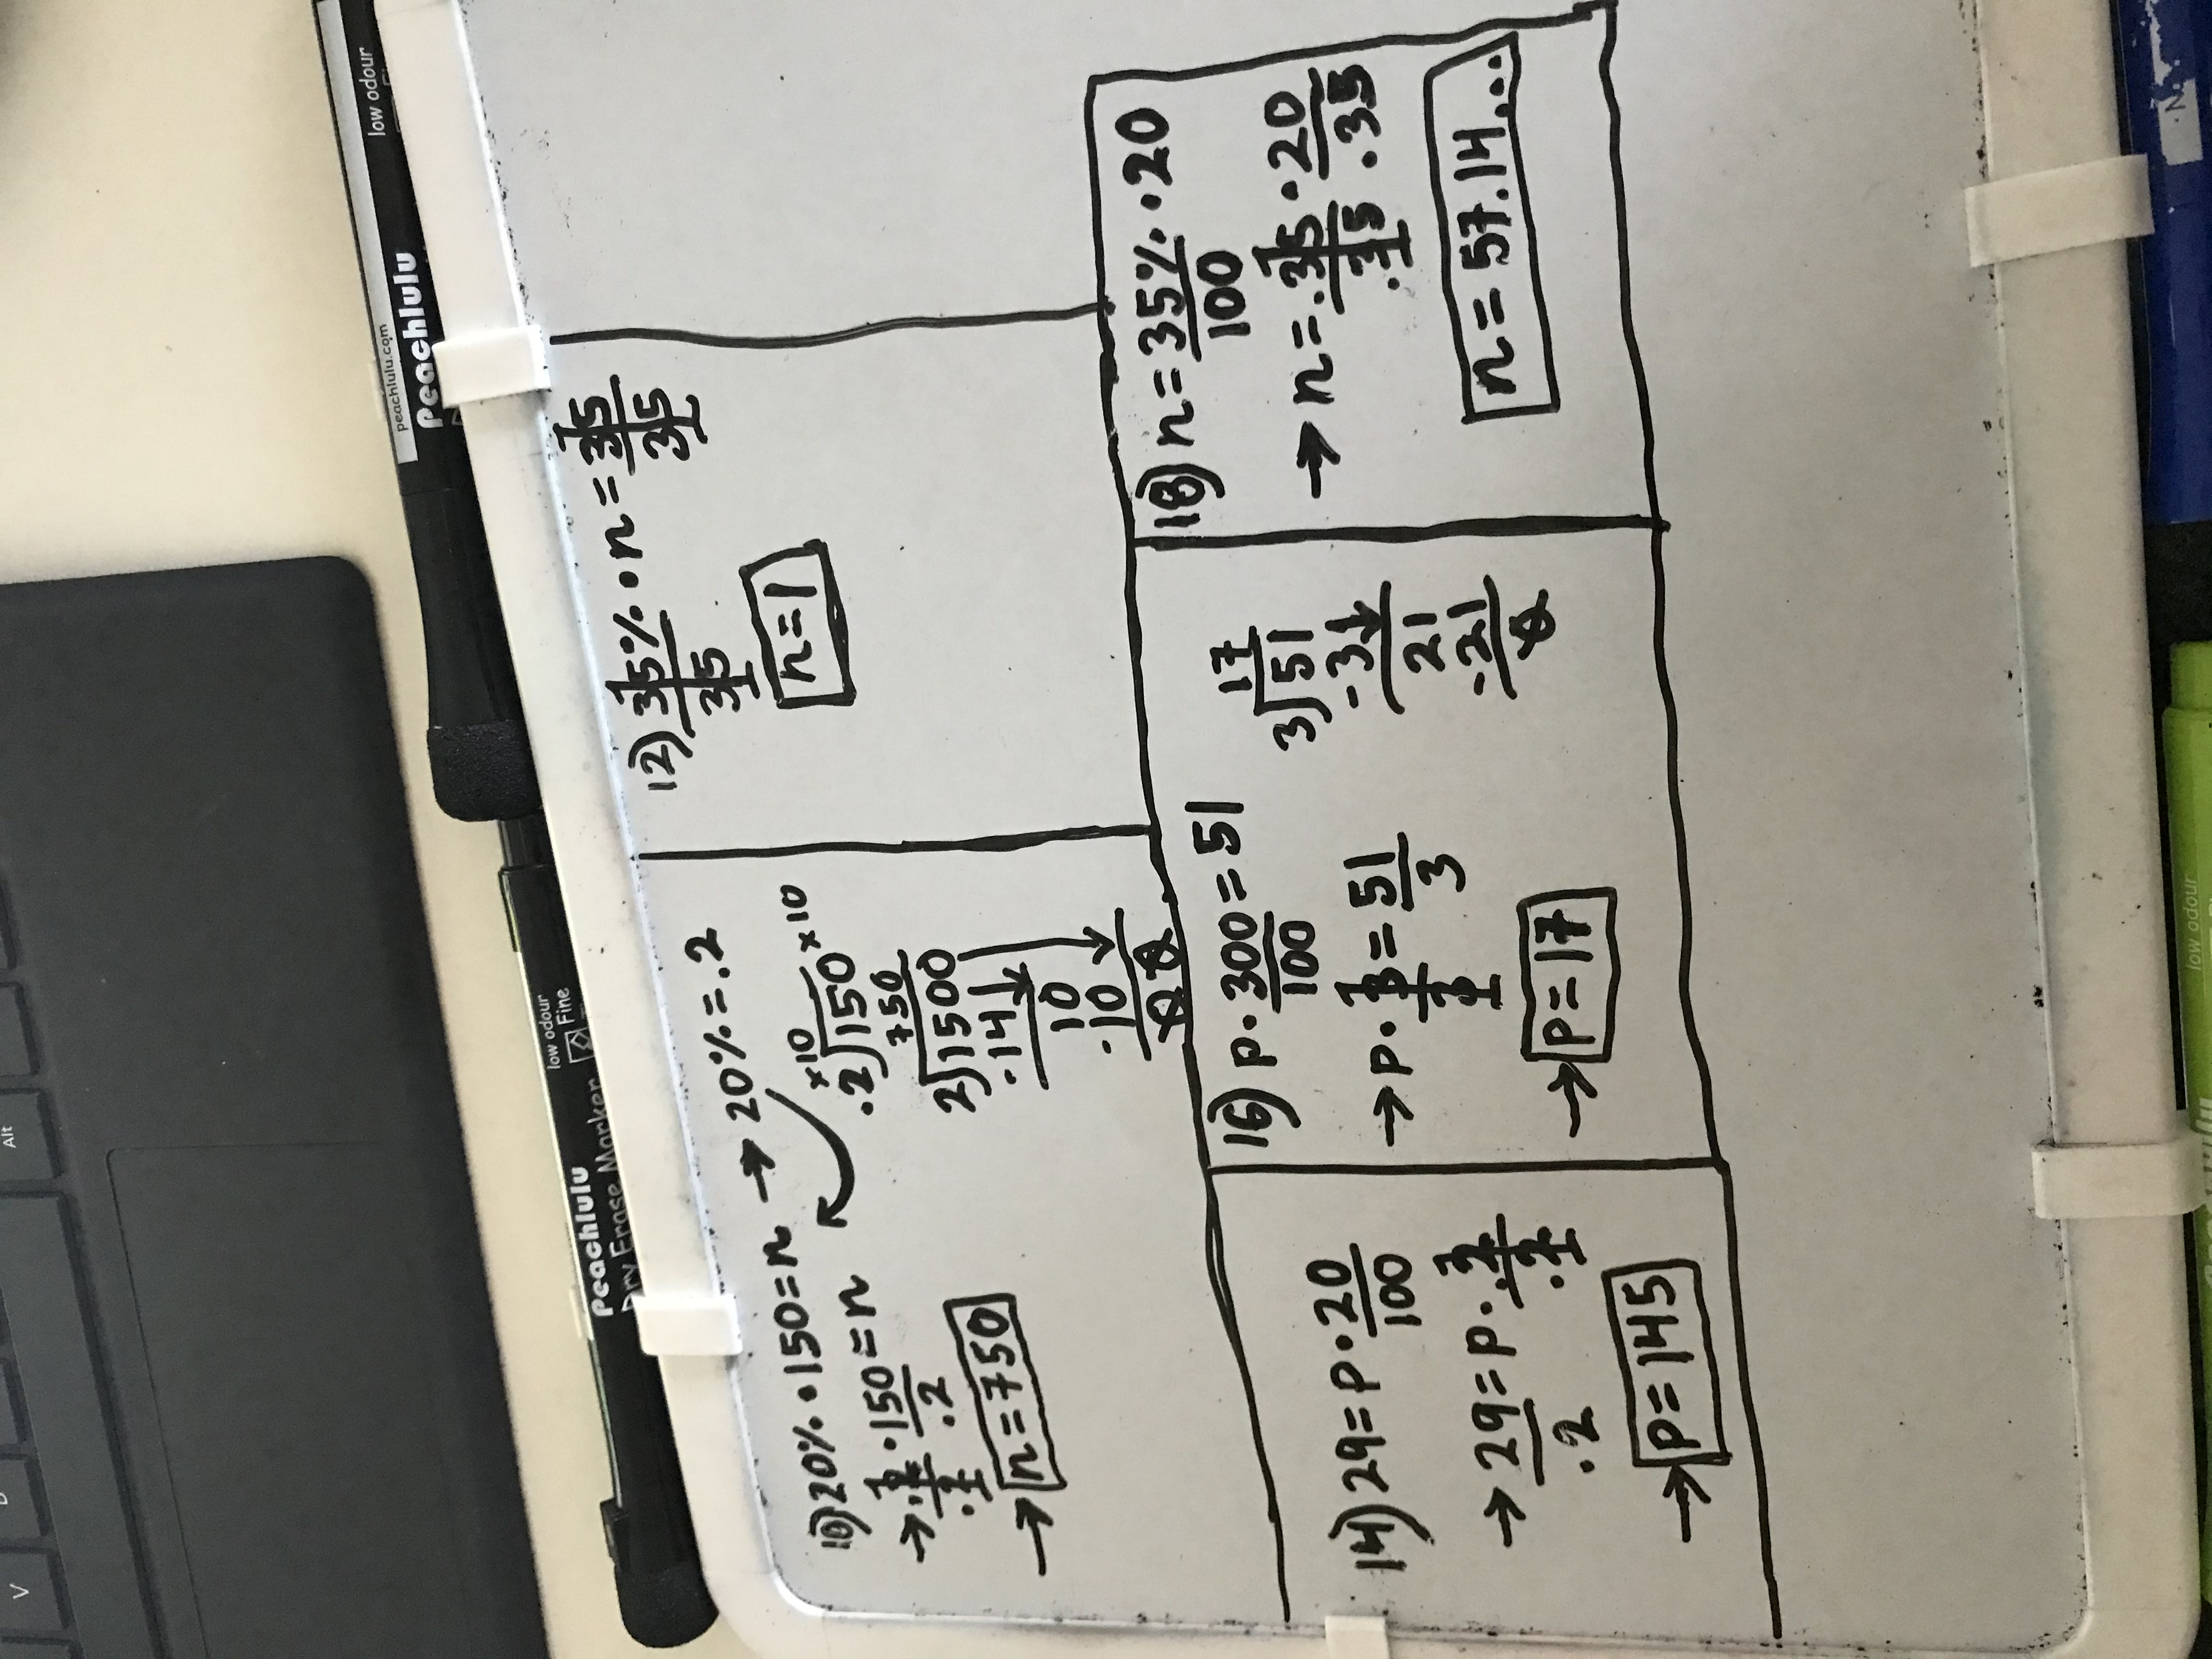 V
Alt
peachlulu.com
Peachlulu
low odour
Peachlulu
Dry Erase Marker
low odour
Fine
10) 20% • 150 = n → 20% = .2
→ .2/.2 • 150/.2 = n
→ n = 750
×10 ×10
.2)150
750
2)1500
-14
10
-10
00
12) 35%/35 • n = 35/35
1 1
1 1
n = 1
14) 29 = P • 20/100
→ 29/.2 = P • .2/.2
→ P = 145
16) P • 300/100 = 51
→ P • 3/3 = 51/3
→ P = 17
17
3)51
-3
21
-21
0
18) n = 35%/100 • 20
→ n = .35/.35 • 20/.35
n = 57.14...
low odour